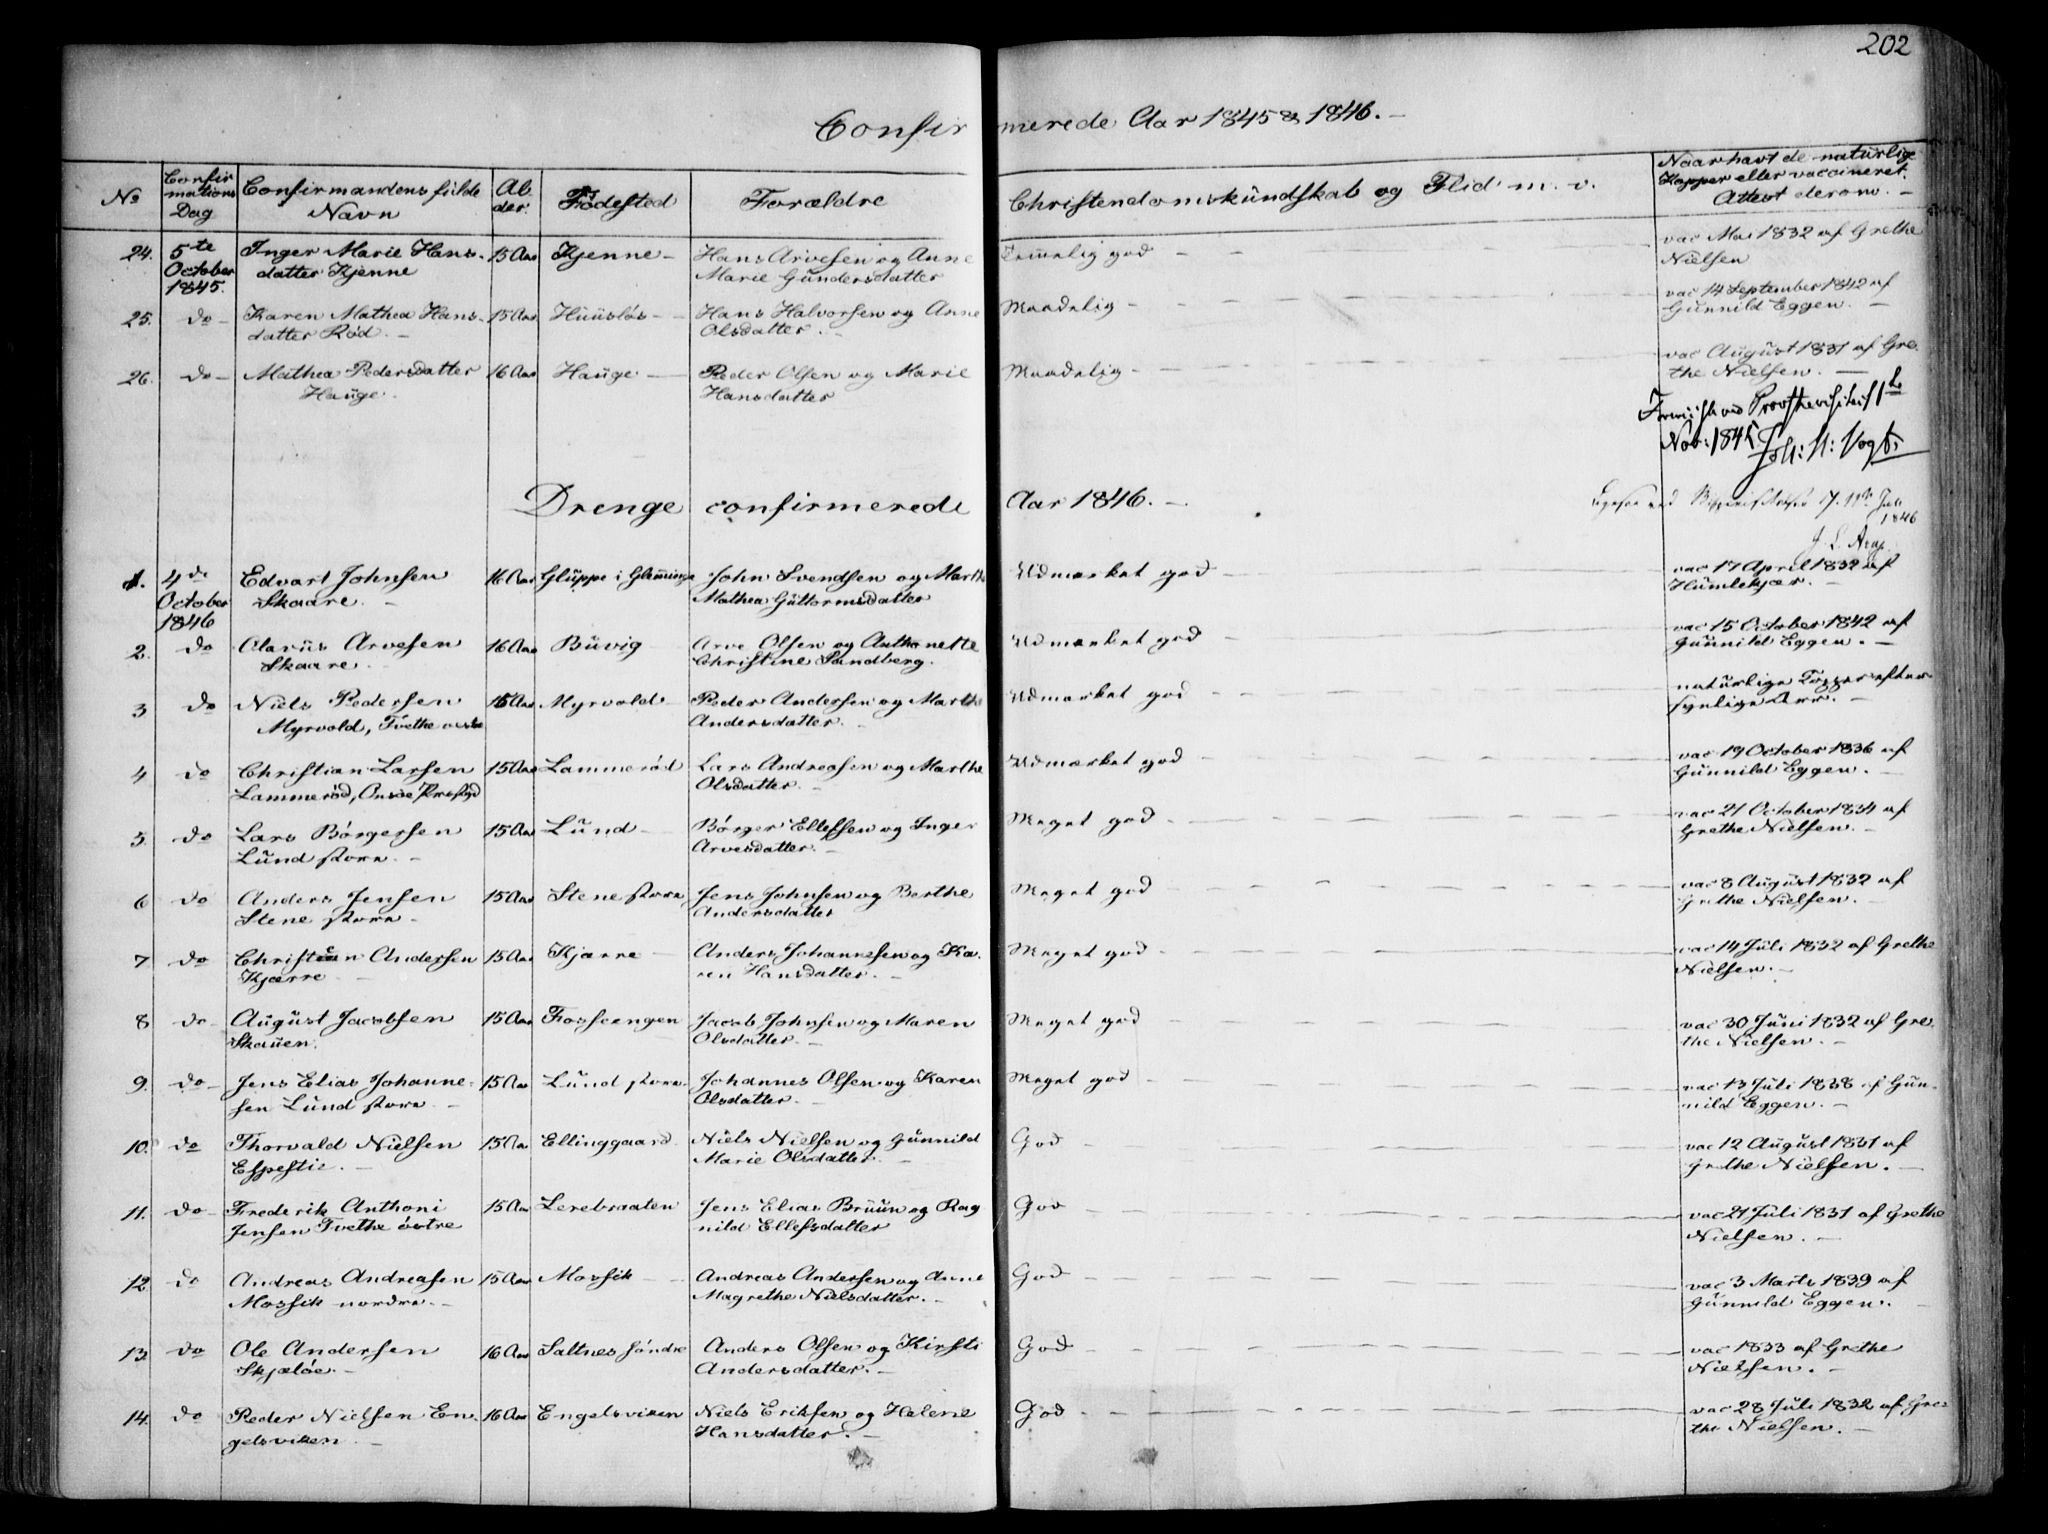 202
Confirmerede Aar 1845 & 1846. —
No Confirmations Dag Confirmandens fulde Navn Alder. Födested Forældre Christendomskundskab og Flid m. v. Naar havt de naturlige Kopper eller vaccineret. Attest derom. —
24. 5te Inger Marie Hans- 15 Aar Kjenne — Hans Arvesen og Anne Temmelig god vac Mai 1832 af Grethe
October datter Kjenne Marie Gundersdatter Nielsen
1845.
25. do — Karen Mathea Hans- 15 Aar Huuslös — Hans Halvorsen og Anne Maadelig vac 14 September 1842 af
datter Röd. — Olsdatter. — Gunnild Eggen. —
26. do — Mathea Pedersdatter 16 Aar Hauge — Peder Olsen og Marie Maadelig vac August 1831 af Gre-
Hauge. Hansdatter the Nielsen. —
Nov: 1845. Joh: N: Vogt
Drenge confirmerede Aar 1846. —
Juli
1846
1. 4de Edvart Johnsen 16 Aar Gluppe i Glemminge John Svendsen og Marthe Udmærket god vac 17 April 1832 af
October Skaare. — Mathea Guttormsdatter Humlekjær. —
1846
2. do Olavus Arvesen 16 Aar Buvig Arve Olsen og Anthonette Udmærket god vac 15 October 1842 af
Skaare. Christine Sandberg. Gunnild Eggen. —
3 do Niels Pedersen 15 Aar Myrvold Peder Andersen og Marthe Udmærket god naturlige Kopper efter
Myrvold, Tvethe Andersdatter. synlige Arr. —
4 do Christian Larsen 15 Aar Lammeröd Lars Andreasen og Marthe Udmærket god vac 19 October 1836 af
Lammeröd, Onsøe Olsdatter. — Gunnild Eggen. —
5. do Lars Börgersen 15 Aar Lund — Börger Ellefsen og Inger Meget god vac 21 October 1834 af
Lund store. — Arvesdatter. — Grethe Nielsen. —
6 do Anders Jensen 15 Aar Stene store Jens Johnsen og Berthe Meget god vac 8 August 1832 af
Stene store. Andersdatter Grethe Nielsen. —
7 do Christian Andersen 15 Aar Kjærre — Anders Johannesen og Ka- Meget god vac 14 Juli 1832 af Grethe
Kjærre — ren Hansdatter. — Nielsen. —
8 do August Jacobsen 15 Aar Fosseengen Jacob Johnsen og Maren Meget god vac 30 Juni 1832 af Gre-
Skauen. Olsdatter. — the Nielsen. —
9. do — Jens Elias Johanne- 15 Aar Lund store. Johannes Olsen og Karen Meget god vac 13 Juli 1838 af Gun-
sen Lund store. — Olsdatter. — nild Eggen. —
10. do Thorvald Nielsen 15 Aar Ellinggaard. Niels Nielsen og Gunnild God vac 12 August 1831 af
Espestie. — Marie Olsdatter. — Grethe Nielsen. —
11. do — Frederik Anthoni 15 Aar Lerebraaten Jens Elias Bruun og Rag God vac 21 Juli 1831 af Grethe
Jensen Tvethe östre nild Ellefsdatter Nielsen. —
12 do Andreas Andreasen 15 Aar Mossik — Andreas Andersen og Anne God vac 3 Marts 1839 af
Mossik nordre. — Magrethe Nielsdatter. — Gunnild Eggen. —
13. do Ole Andersen 16 Aar Saltnes söndre Anders Olsen og Kirsti God vac 1833 af Grethe
Skjælöe. — Andersdatter. — Nielsen. —
14. do Peder Nielsen En- 16 Aar Engelsviken Niels Eriksen og Helene God vac 28 Juli 1832 af Gre-
gelsviken. — Hansdatter. — the Nielsen. —